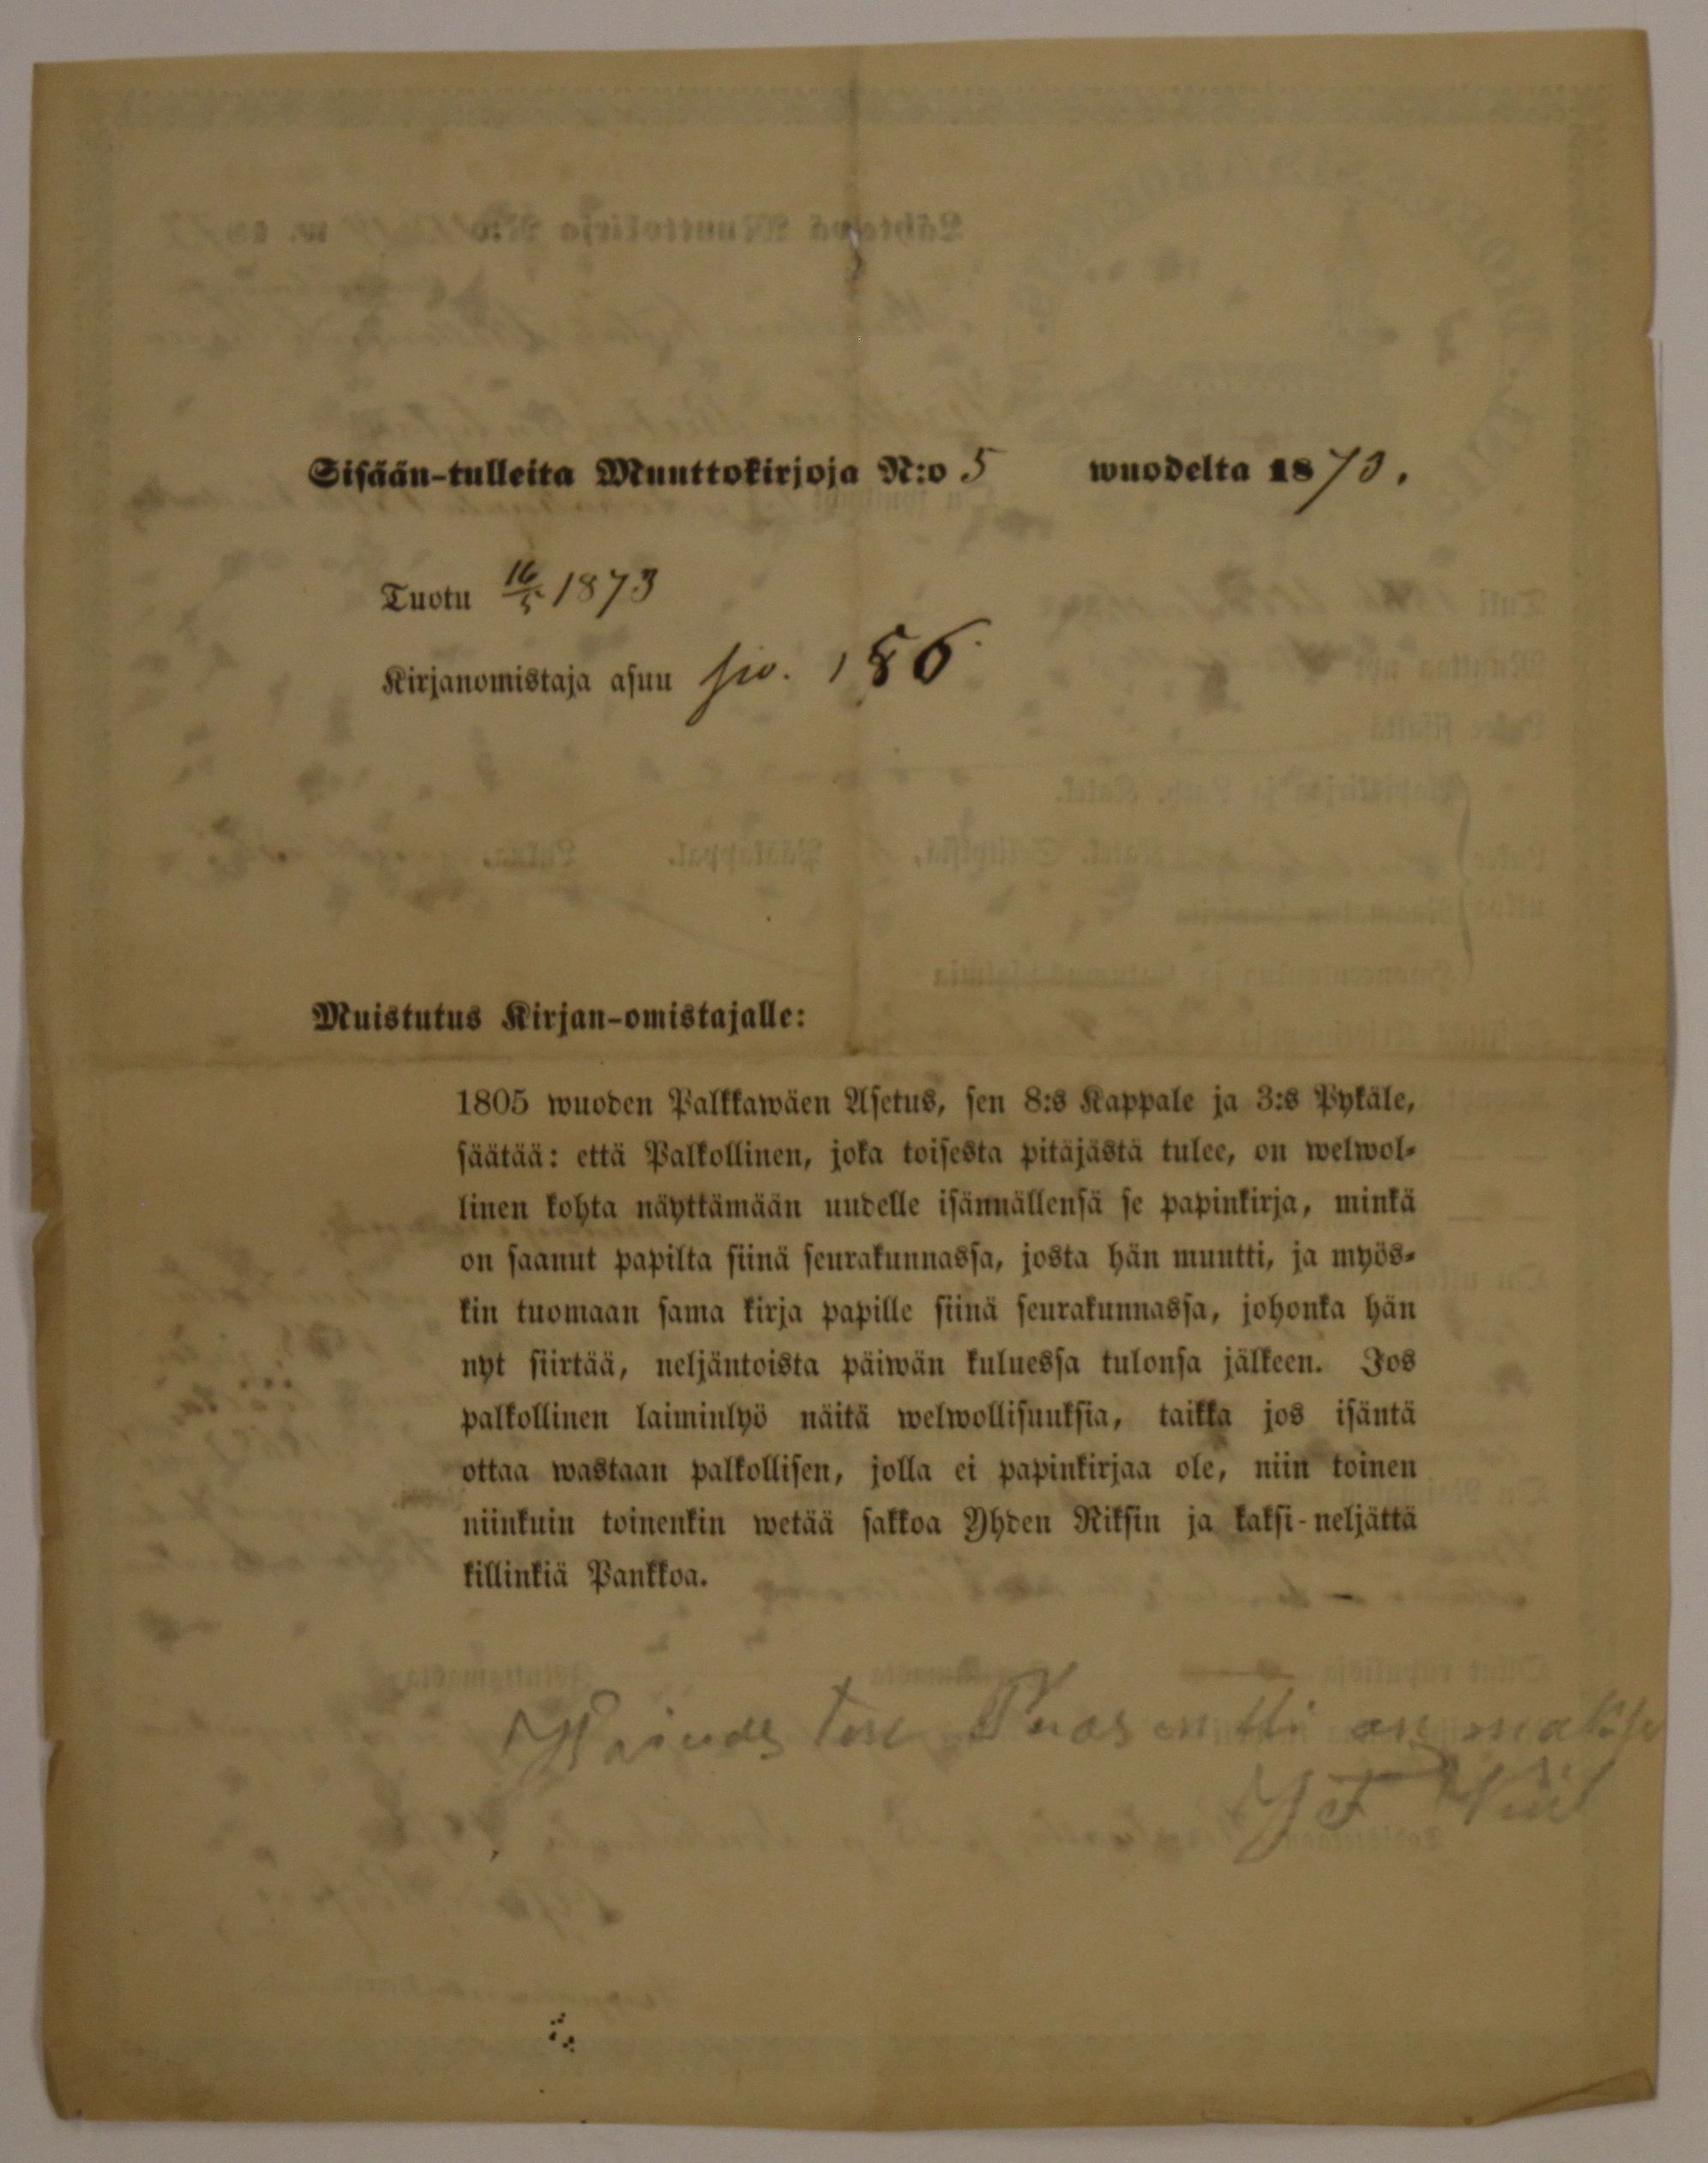 Sisään-tulleita Muuttokirjoja N:o 5 wuodelta 1873.
Tuotu 16/5 1873
Kirjanomistaja asuu siv. 186
Muistutus Kirjan-omistajalle:
1805 wuoden Palkkawäen Asetus, sen 8:s Kappale ja 3:s Pykäle,
säätää: että Palkollinen, joka toisesta pitäjästä tulee, on welwol-
linen kohta näyttämään uudelle isännällensä se papinkirja, minkä
on saanut papilta siinä seurakunnassa, josta hän muutti, ja myös-
kin tuomaan sama kirja papille siinä seurakunnassa, johonka hän
nyt siirtää, neljäntoista päiwän kuluessa tulonsa jälkeen. Jos
palkollinen laiminlyö näitä welwollisuuksia, taikka jos isäntä
ottaa wastaan palkollisen, jolla ei papinkirjaa ole, niin toinen
niinkuin toinenkin wetää sakkoa Yhden Riksin ja kaksi-neljättä
killinkiä Pankkoa.
on